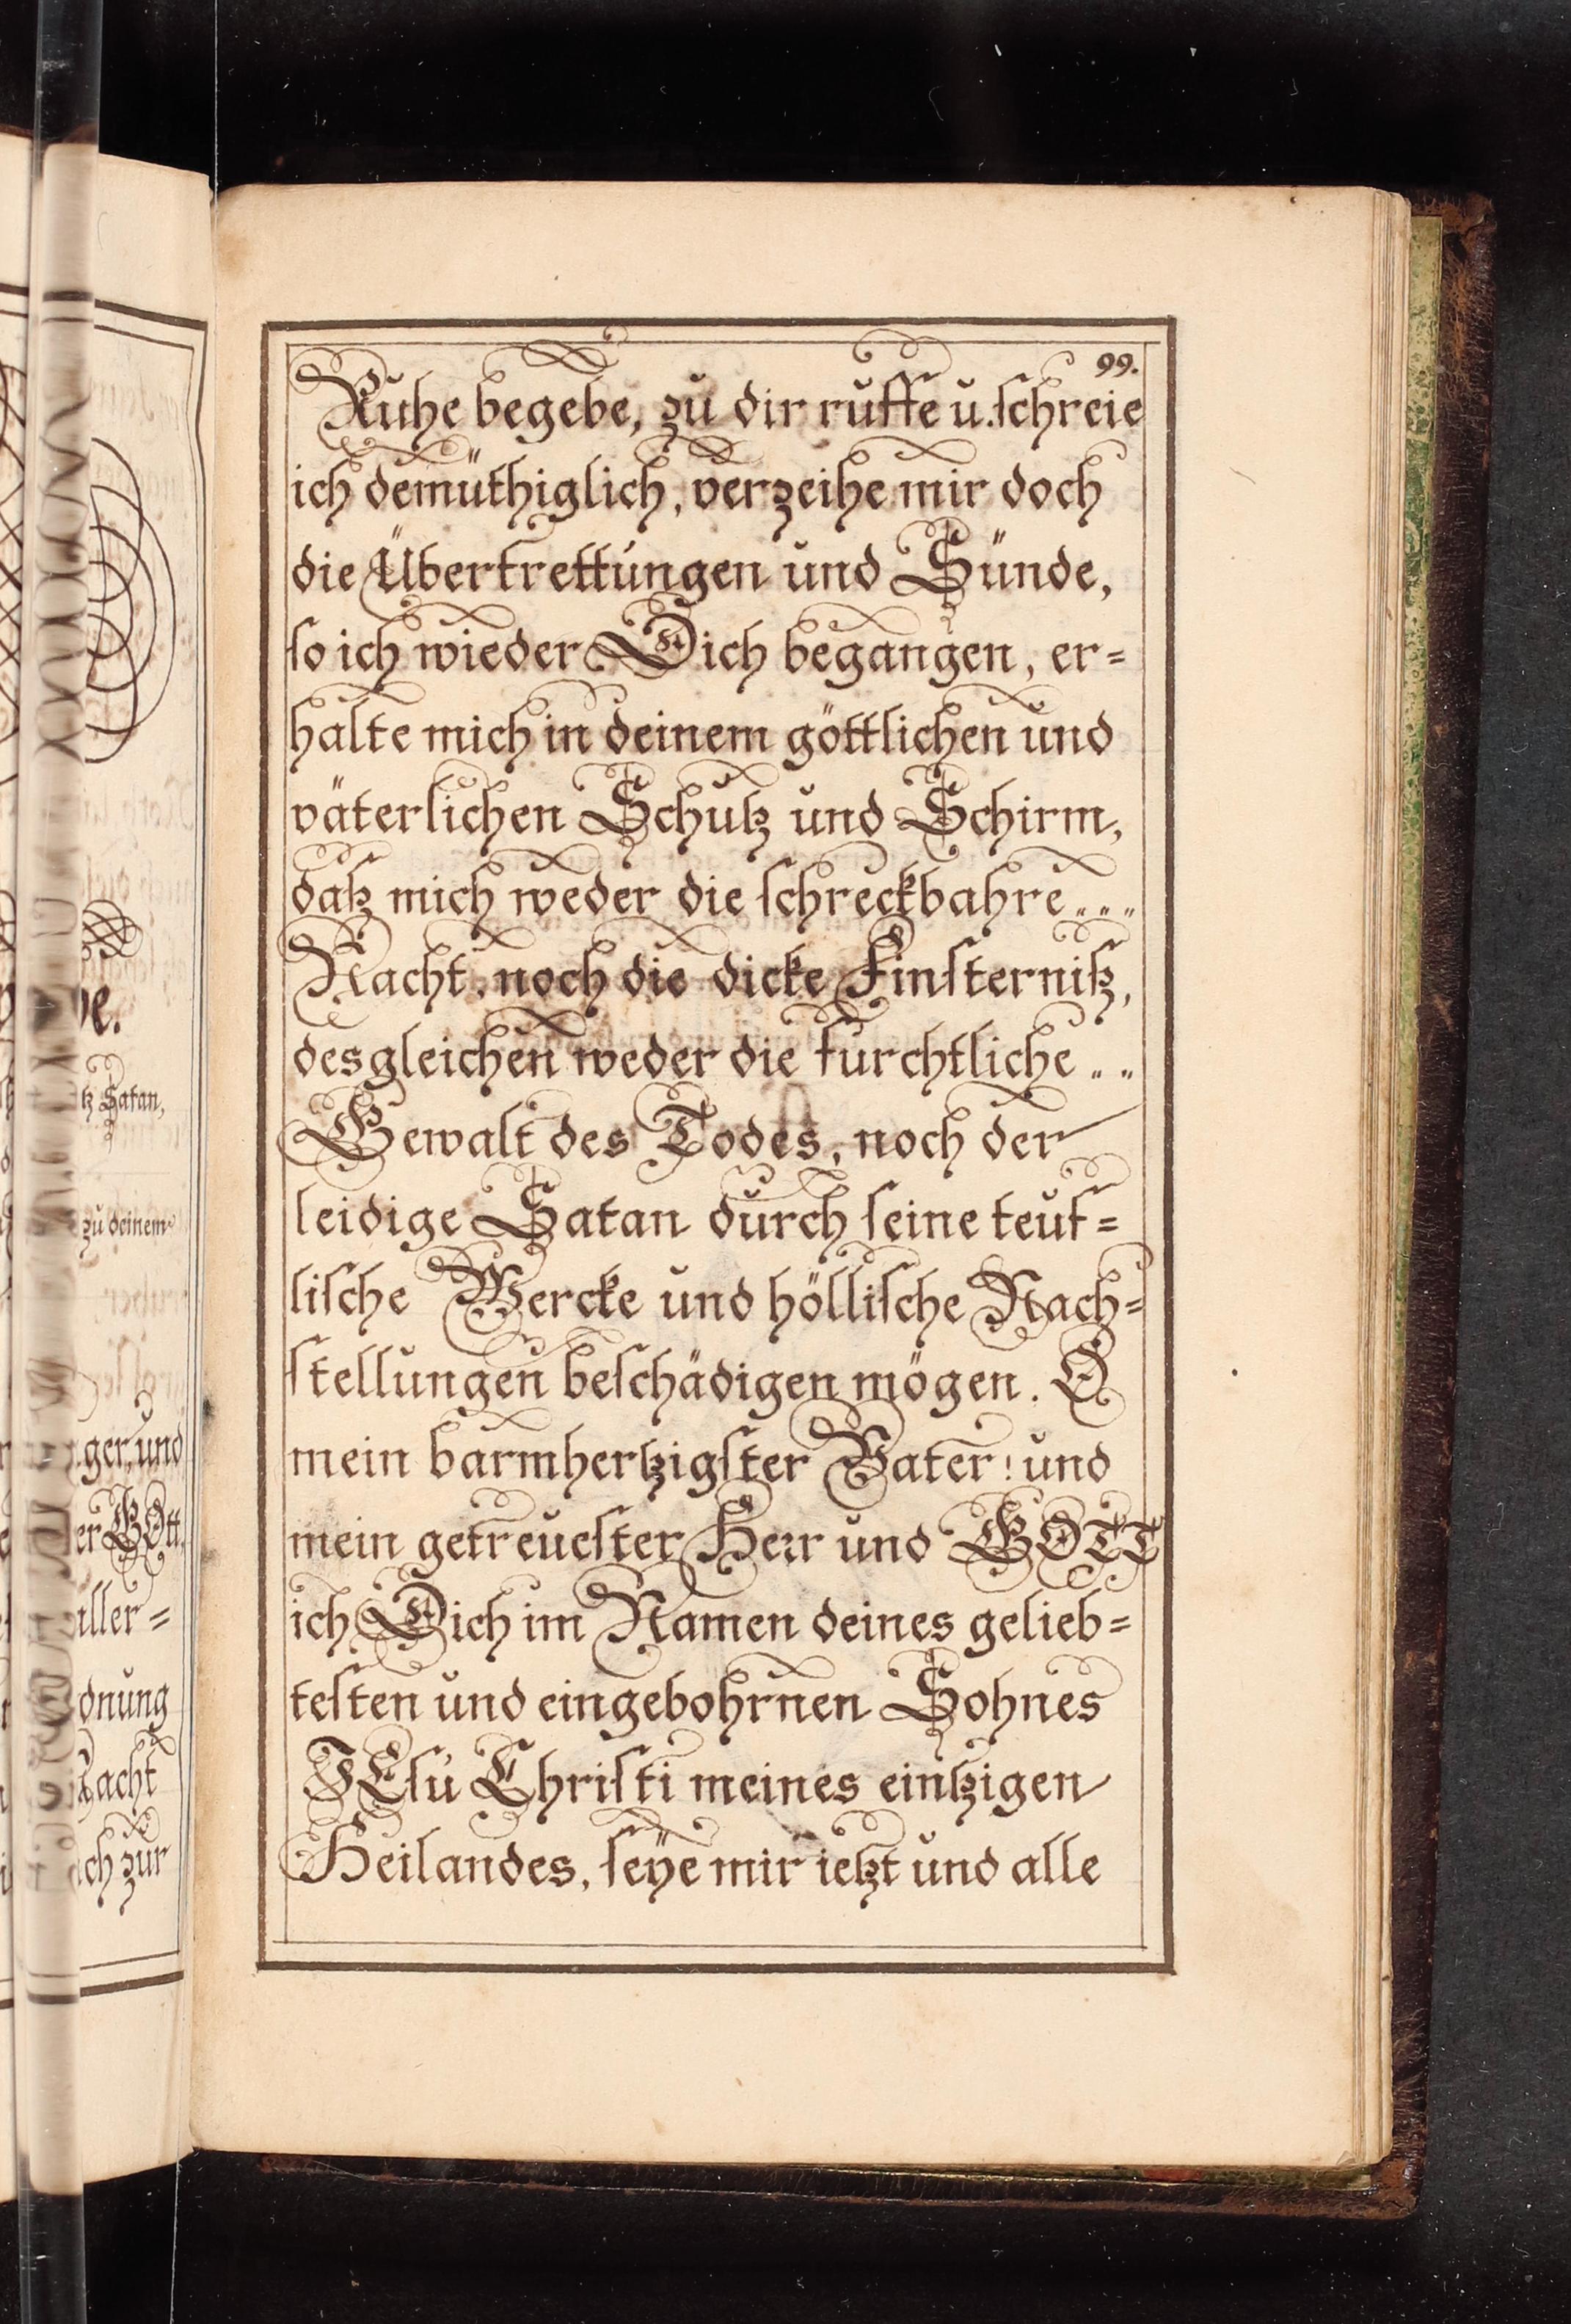 99.
Ruhe begebe, zu dir ruffe u. schreie
ich demüthiglich, verzeihe mir doch
die Übertrettungen und Sünde,
so ich wieder Dich begangen, er=
halte mich in deinem göttlichen und
väterlichen Schutz und Schirm,
daß mich weder die schreckbahre...
Nacht, noch die dicke Finsterniß,
desgleichen weder die furchtliche ..
Gewalt des Todes, noch der
leidige Satan durch seine teuf=
lische Wercke und höllische Nach=
stellungen beschädigen mögen. O
mein barmhertzigster Vater! und
mein getreuester Herr und GOTT
ich Dich im Namen deines gelieb=
testen und eingebohrnen Sohnes
JEsu Christi meines eintzigen
Heilandes, seÿe mir ietzt und alle